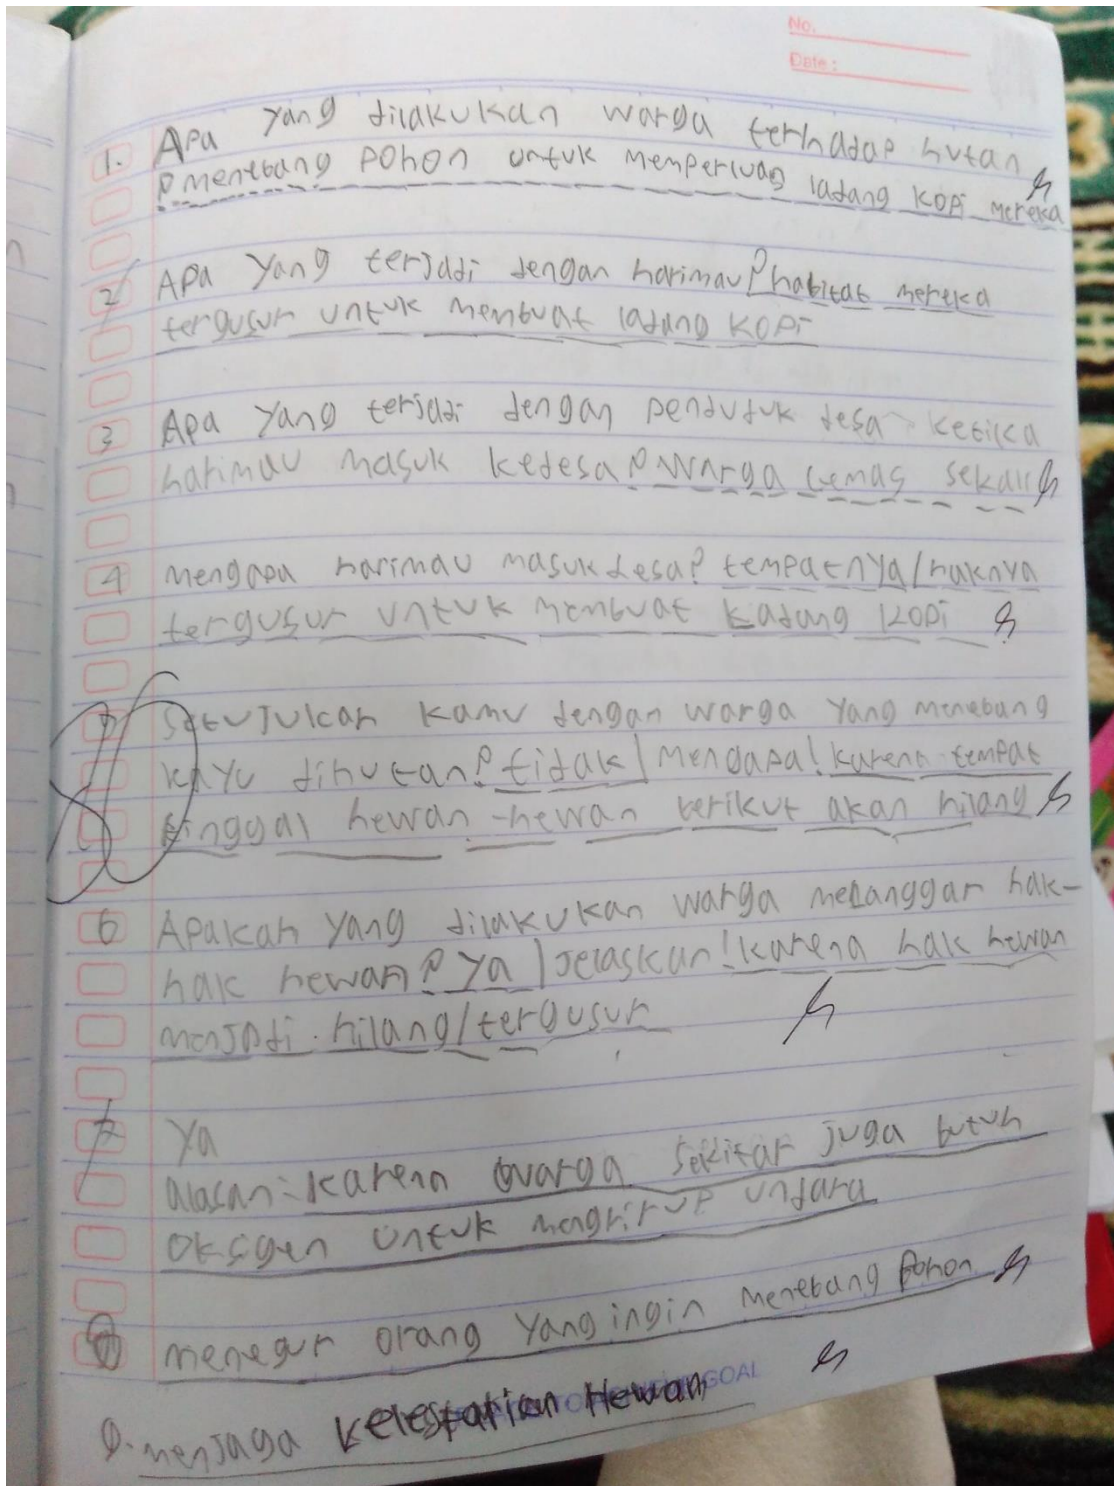 No.
Date :
1. Apa yang dilakukan warga terhadap hutan
? menebang pohon untuk memperluas ladang kopi mereka
2 Apa yang terjadi dengan harimau? habitat mereka
tergusur untuk membuat ladang kopi
3 Apa yang terjadi dengan penduduk desa ketika
harimau masuk kedesa? Warga cemas sekali
4 mengapa harimau masuk desa? tempatnya/haknya
tergusur untuk membuat ladang kopi
setujulkah kamu dengan warga yang menebang
kayu dihutan? tidak | mengapa! karena tempat
tinggal hewan-hewan berikut akan hilang
6 Apakah yang dilakukan warga melanggar hak-
hak hewan? Ya | jelaskan! karena hak hewan
menjadi hilang/tergusur
7 Ya
alasan: karena warga sekitar juga butuh
oksigen untuk mengrirup undara
8 menegur orang yang ingin menebang pohon
GOAL
9. menjaga kelestarian Hewan